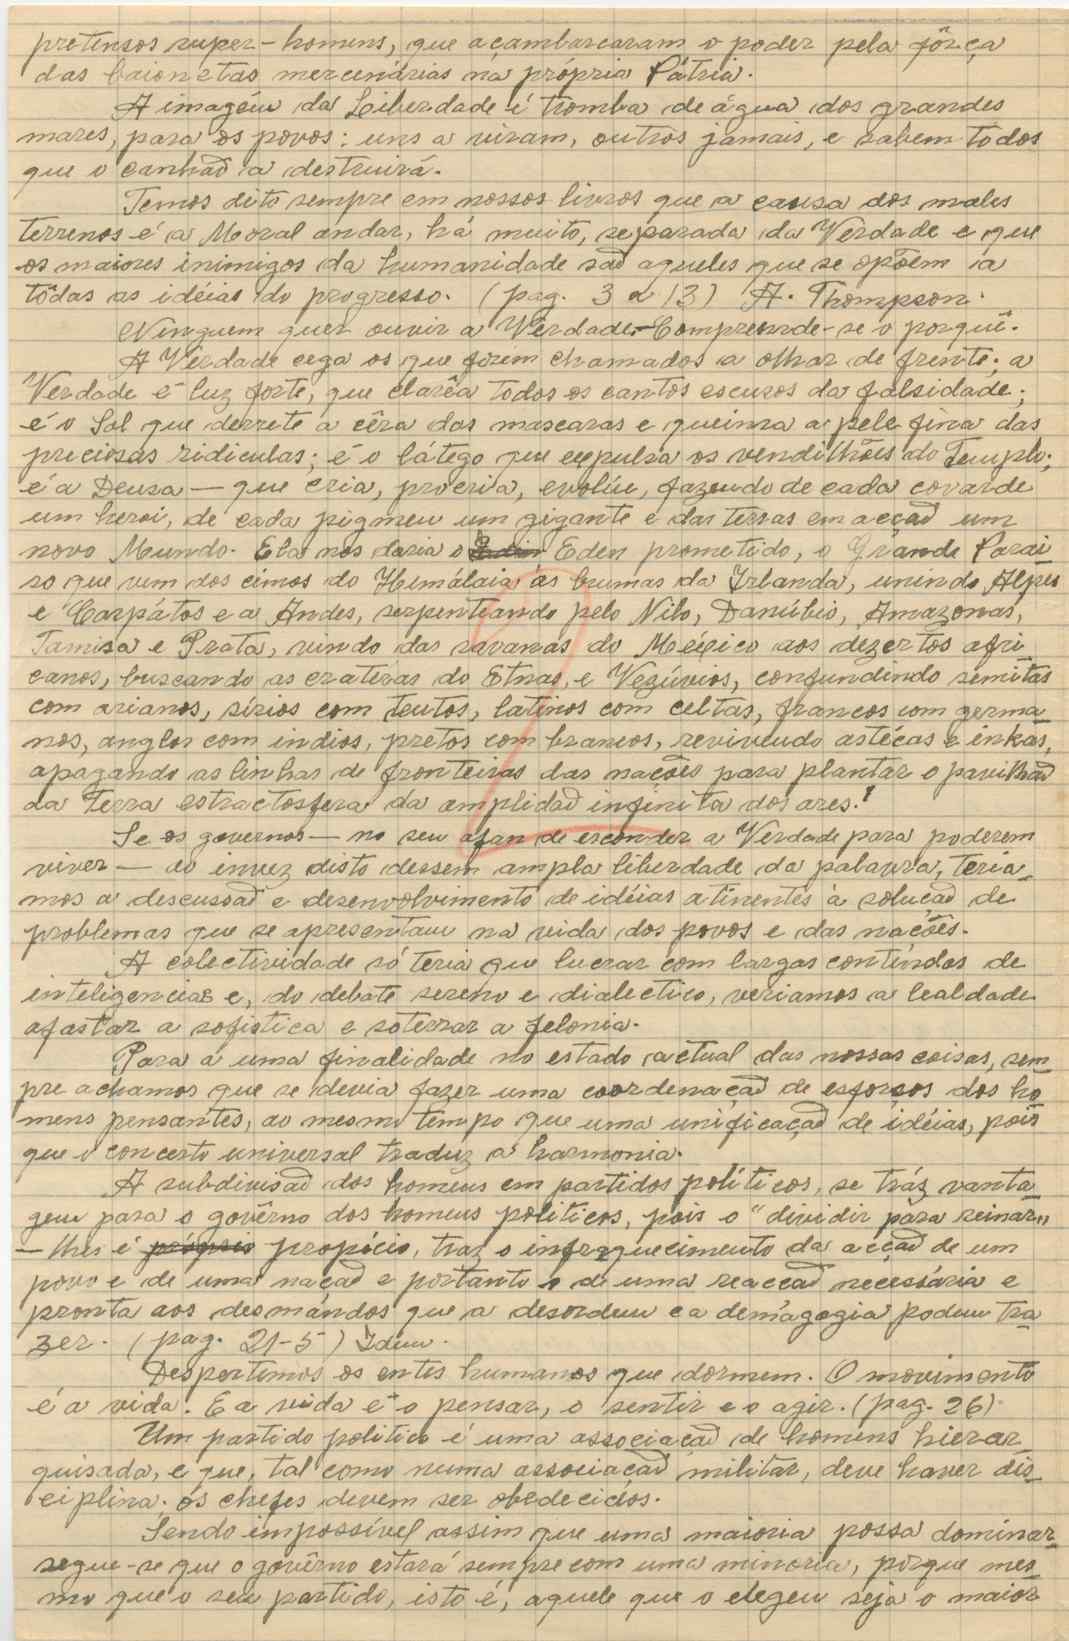 pretensos super-homens, que açambarcaram o poder pela fôrça
das baionetas mercenárias na própria Pátria.
A imagem da Liberdade é tromba de água dos grandes
mares, para os povos: uns a viram, outros jamais, e sabem todos
que o canhaõ a destruirá.
Temos dito sempre em nossos livros que a causa dos males
terrenos é a Moral andar, há muito, separada da Verdade e que
os maiores inimigos da humanidade saõ aqueles que se opõem a
tôdas as idéias do progresso. (pag. 3 a 13) A. Thompson.
Ninguem quer ouvir a Verdade.-Compreende-se o porquê.
A Verdade cega os que forem chamados a olhar de frente; a
Verdade é luz forte, que clarêa todos os cantos escuros da falsidade;
é o Sol que derrete a cêra das mascaras e queima a pele fina das
preciosas ridiculas; é o látego que expulsa os vendilhões do Templo;
é a Deusa — que cria, procria, evolúe, fazendo de cada covarde
um heroi, de cada pigmeu um gigante e das terras em acçaõ um
novo Mundo. Ela nos daria o Eden prometido, o Grande Parai
so que vem dos cimos do Himálaia ás brumas da Irlanda, unindo Alpes
e Carpátos e a Andes, serpenteando pelo Nilo, Danúbio, Amazonas,
Tamisa e Prata, vindo das savanas do México aos dezertos afri
canos, buscando as cratéras do Etnas, e Vezúvios, confundindo semitas
com arianos, sírios com teutos, latinos com celtas, francos com germa_
nos, anglos com indios, pretos com brancos, revivendo astécas e inkas,
apagando as linhas de fronteiras das nações para plantar o pavilhaõ
da terra estractosfera da amplidaõ infinita dos ares!
Se os governos — no seu afan de esconder a Verdade para poderem
viver — ao invez disto dessem ampla liberdade da palavra, teria_
mos a descussaõ e desenvolvimento de idéias atinentes à soluçaõ de
problemas que se apresentam na vida dos povos e das nações.
A colectividade só teria que lucrar com largas contendas de
inteligencias e, do debate sereno e dialectico, veriamos a lealdade
afastar a sofistica e soterrar a felonia.
Para a uma finalidade no estado actual das nossas coisas, sem_
pre achamos que se devia fazer uma coordenaçaõ de esforços dos ho_
mens pensantes, ao mesmo tempo que uma unificaçaõ de idéias, pois
que o concerto universal traduz a harmonia.
A subdivisaõ dos homens em partidos políticos, se tráz vanta_
gem para o govêrno dos homens políticos, pois o "dividir para reinar"
— lhes é propício, traz o infraquecimento da acçaõ de um
povo e de uma naçaõ e portanto o de uma reacçaõ necessária e
pronta aos desmandos que a desordem e a demagogia podem tra_
zer. (pag. 21-5) Idem.
Despertemos os entes humanos que dormem. O movimento
é a vida. E a vida é o pensar, o sentir e o agir. (pag. 26).
Um partido politico é uma associaçaõ de homens hierar_
quisada, e que, tal como numa associaçaõ militar, deve haver dis_
ciplina. Os chefes devem ser obedecidos.
Sendo impossível assim que uma maioria possa dominar_
segue-se que o govêrno estará sempre com uma minoria, porque mes_
mo que o seu partido, isto é, aquele que o elegeu seja o maior